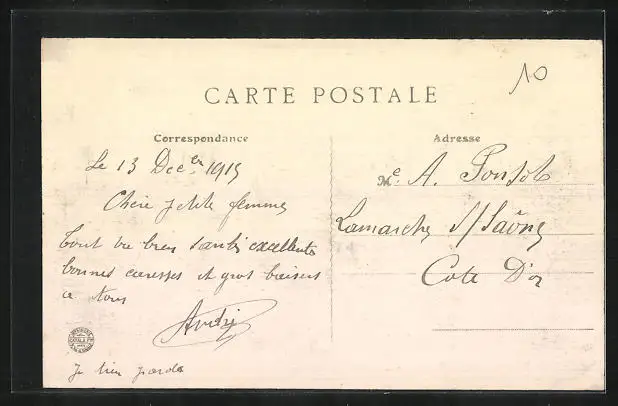 10
CARTE POSTALE
Correspondance
Adresse
Le 13 Dec.er 1915
Chère petite femme
Tout va bien santé excellente
bonnes caresses et gros baisers
a tous
André
Me A. Ponsot
Lamarche S/Saône
Cote D'or